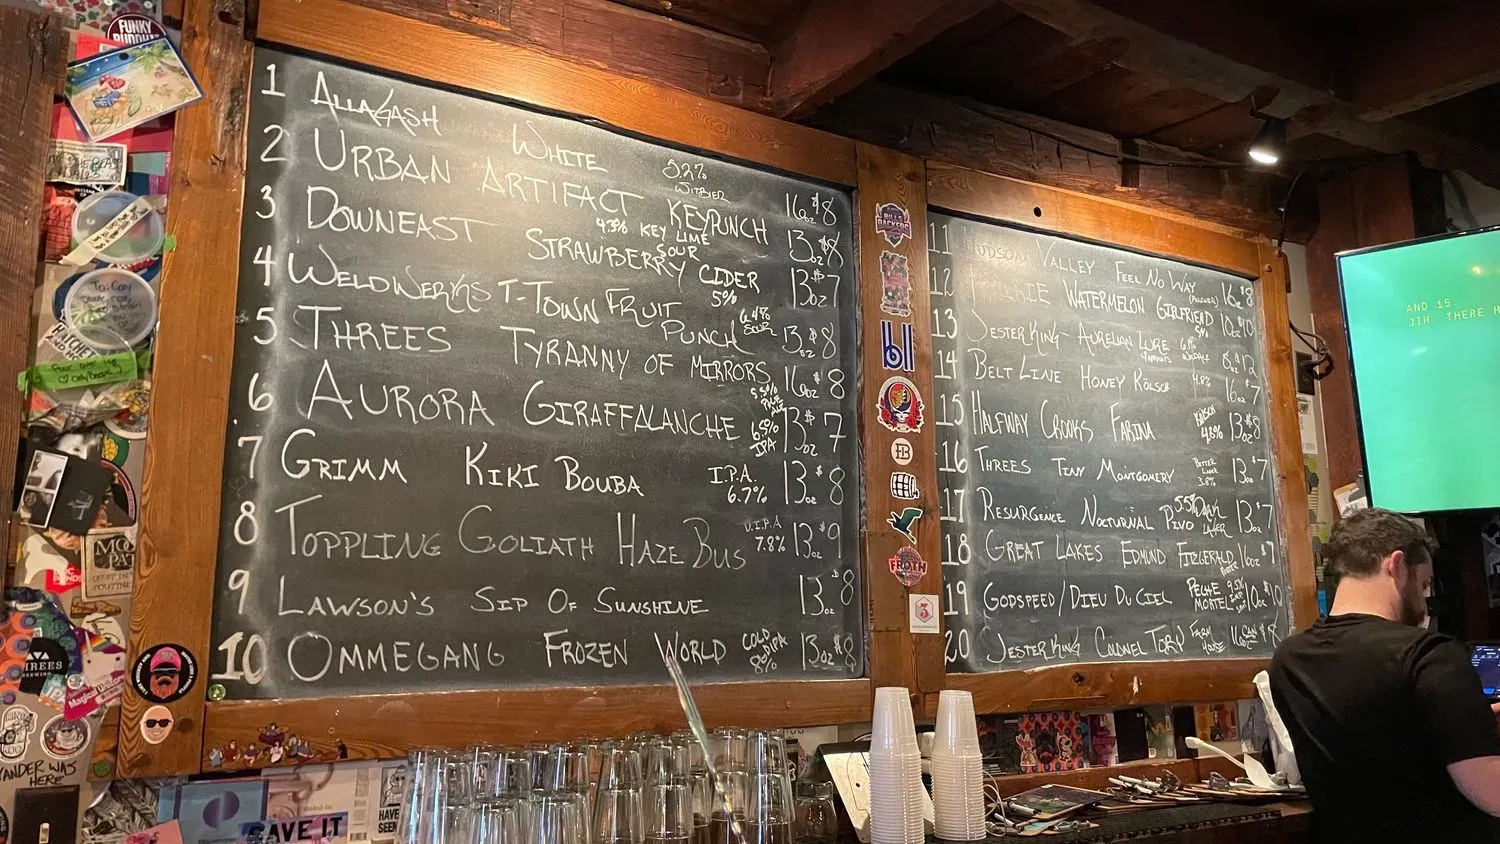 1 ALLAGASH WHITE 5.2% WITBIER 16oz $8
2 URBAN ARTIFACT KEYPUNCH 4.3% KEY LIME SOUR 13oz $8
3 DOWNEAST STRAWBERRY CIDER 5% 13oz $7
4 WELDWERKS T-TOWN FRUIT PUNCH 6.4% SOUR 13oz $8
5 THREES TYRANNY OF MIRRORS 5.5% PALE ALE 16oz $8
6 AURORA GIRAFFALANCHE 6.5% IPA 13oz $7
7 GRIMM KIKI BOUBA I.P.A. 6.7% 13oz $8
8 TOPPLING GOLIATH HAZE BUS D.I.P.A 7.8% 13oz $9
9 LAWSON'S SIP OF SUNSHINE 13oz 8
10 OMMEGANG FROZEN WORLD COLD 13oz $8
11 HUDSON VALLEY FEEL NO WAY (PILSNER) 16oz $8
12 WATERMELON GIRLFRIEND 5% 10oz $10
13 JESTER KING - AURELIAN LURE
14 BELT LINE HONEY KÖLSCH 4.8% 16oz $7
15 HALFWAY CROOKS FARINA KÖLSCH 4.8% 13oz $8
16 THREES TINY MONTGOMERY BITTER 3.8% 13oz $7
17 RESURGENCE NOCTURNAL PIVO 5.5% DARK LAGER 13oz $7
18 GREAT LAKES EDMUND FITZGERALD PORTER 16oz $7
19 GODSPEED/DIEU DU CIEL PECHE MORTEL 9.5% IMP 10oz $10
20 JESTER KING COLONEL TORY FARM HOUSE 16oz CAN
FUNKY BUDDHA
BILLS BACKERS
bl
FROTH
THREES BREWING
WAS HERE
SAVE IT
HAVE SEEN
AND 15.
JIH: THERE